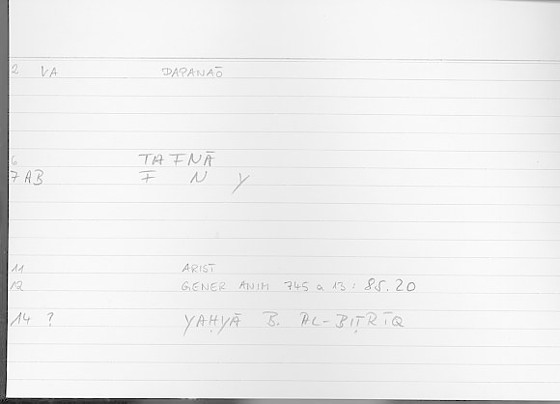 2 VA DAPANAŌ
6 TAFNĀ
7 AB F N Y
11 ARIST
12 GENER ANIM 745 a 13 : 85.20
14 ? YAḤYĀ B. AL-BIṬRĪQ